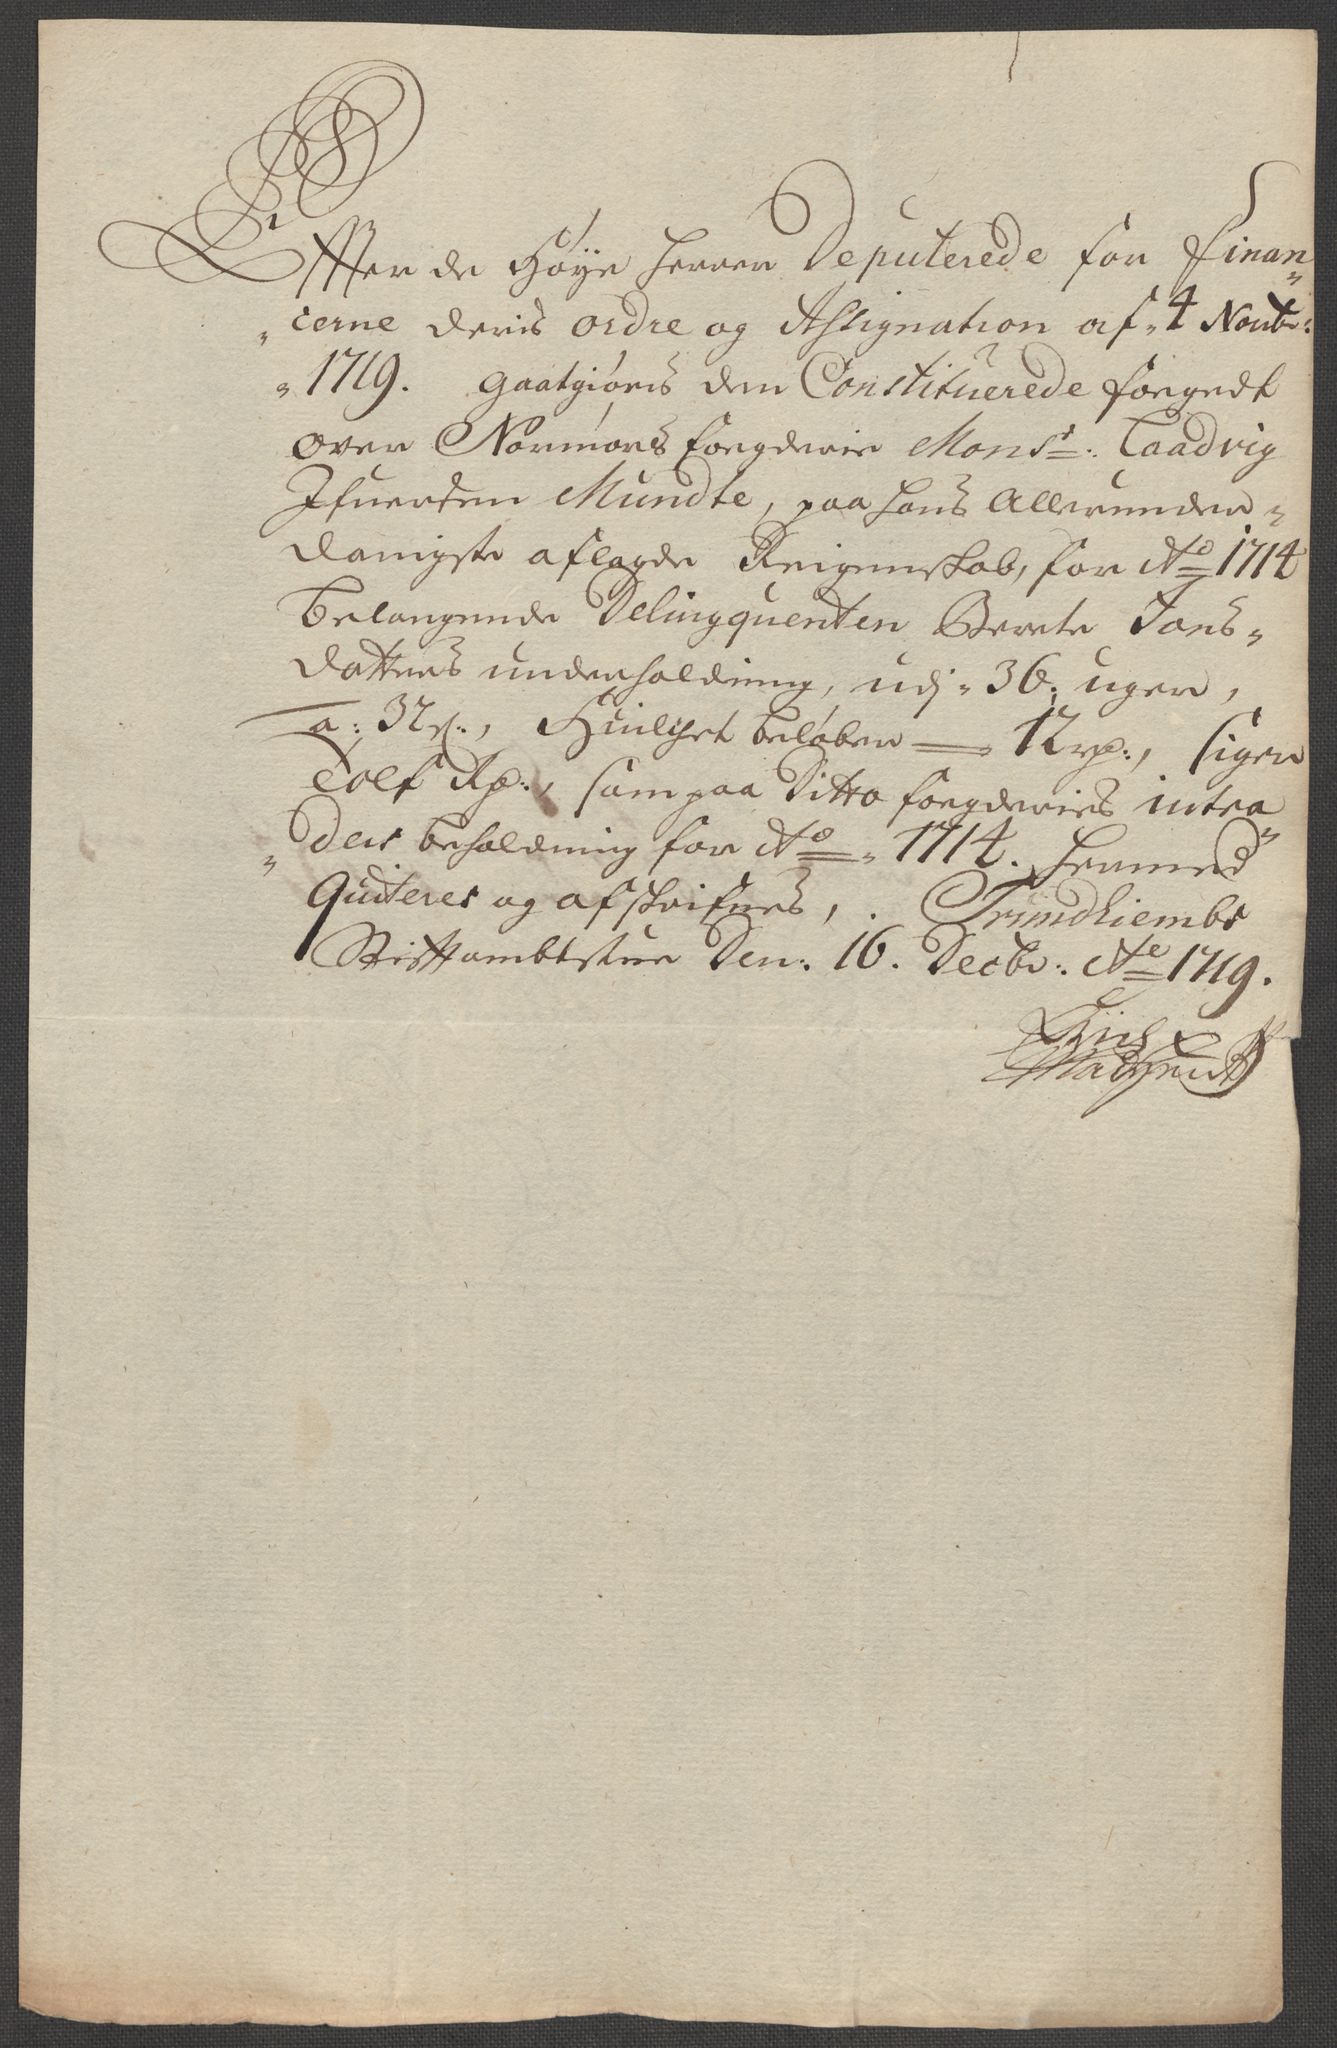 Effter de Høÿe Herrer Deputerede for Finan-
cerne deris ordre og Assignation af 4 Novbr:
1719. gaatgiøris den Constituerede foegedt
over Normørs foegderie Monsr: Laadvig
Ifuersen Mundte, paa hans Allerunder-
danigste aflagde Reigenskab, for Ao 1714
belangende Delingquenten Berete Jons-
datters underholdning, udj 36. uger,
a: 32 s:, Huilchet beløber — 12 rd:, siger
Tolf Rd:, som paa Ditto foegderies intra
ders beholdning for Ao 1714. hermed
Quiteres og afskrifues, Trundhiembs
Stifftambtstue Den: 16. Decbr: Ao 1719.